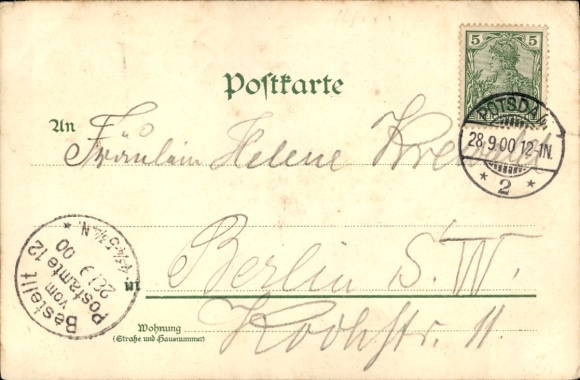 5 5
Postkarte
POTSDAM
28.9.00 12-1N.
* 2 *
An
Fräulein Helene
in Berlin S. W.
Kochstr. 11.
Wohnung
(Straße und Hausnummer)
Bestellt
vom
Postamte 12
28/9 00